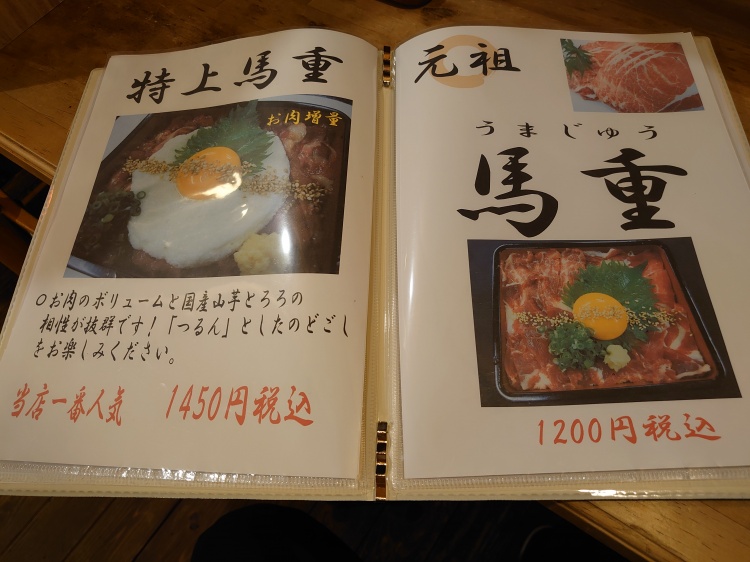 特上馬重
お肉増量
○お肉のボリュームと国産山芋とろろの
相性が抜群です！「つるん」としたのどごし
をお楽しみください。
当店一番人気 1450円税込
元祖
うまじゅう
馬重
1200円税込